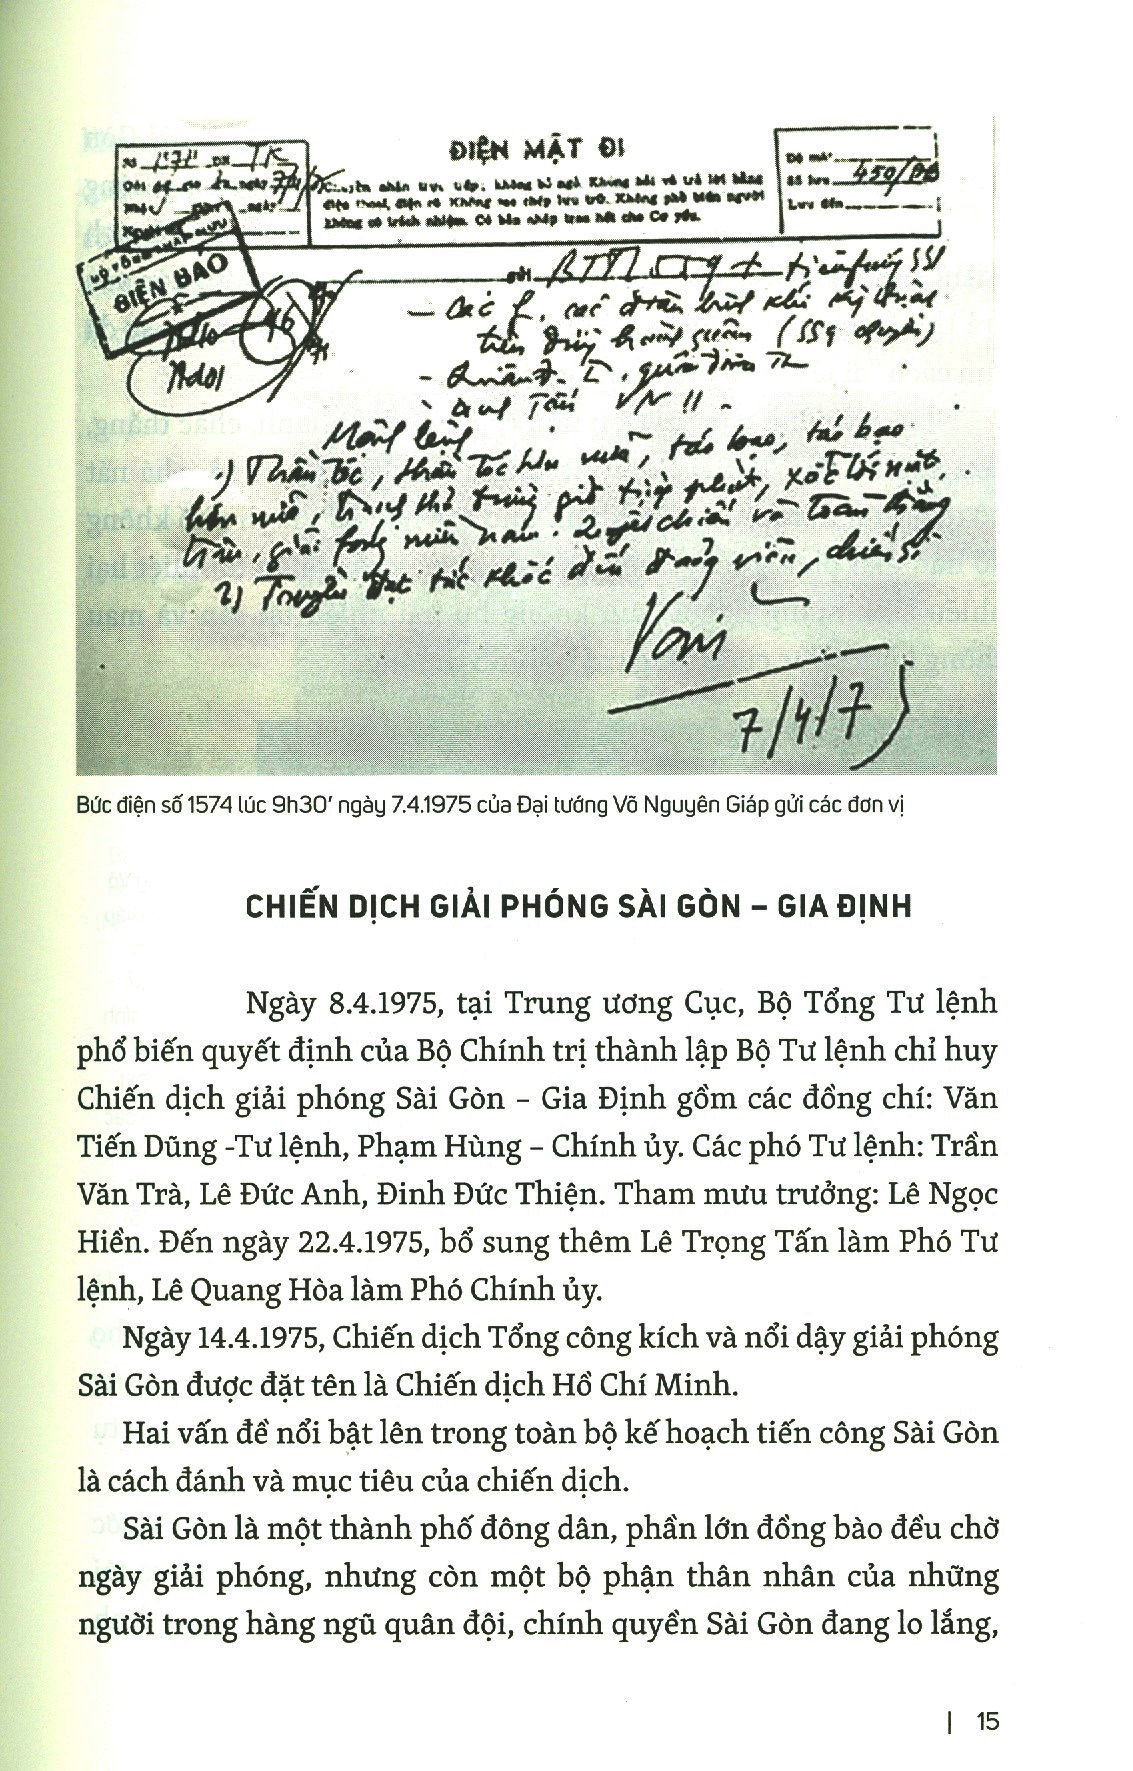 ĐIỆN MẬT ĐI
Số 1574 ĐK TK
Chuyên nhân trực tiếp, không bỏ ngỏ. Không hỏi và trả lời bằng
điện thoại, điện rõ. Không sao chép lưu trữ. Không phổ biến người
không có trách nhiệm. Có bản nhập trao hết cho Cơ yếu.
Độ mật
Số lưu 450/ĐB
Lưu đến
ĐIỆN BÁO
Mệnh lệnh
1) Thần tốc, thần tốc hơn nữa, táo bạo, táo bạo
hơn nữa, tranh thủ từng giờ từng phút, xốc tới mặt
trận, giải phóng miền nam. Quyết chiến và toàn thắng
2) Truyền đạt tức khắc đến đảng viên, chiến sĩ
Văn
7/4/75
Bức điện số 1574 lúc 9h30' ngày 7.4.1975 của Đại tướng Võ Nguyên Giáp gửi các đơn vị
CHIẾN DỊCH GIẢI PHÓNG SÀI GÒN – GIA ĐỊNH
Ngày 8.4.1975, tại Trung ương Cục, Bộ Tổng Tư lệnh
phổ biến quyết định của Bộ Chính trị thành lập Bộ Tư lệnh chỉ huy
Chiến dịch giải phóng Sài Gòn – Gia Định gồm các đồng chí: Văn
Tiến Dũng -Tư lệnh, Phạm Hùng – Chính ủy. Các phó Tư lệnh: Trần
Văn Trà, Lê Đức Anh, Đinh Đức Thiện. Tham mưu trưởng: Lê Ngọc
Hiền. Đến ngày 22.4.1975, bổ sung thêm Lê Trọng Tấn làm Phó Tư
lệnh, Lê Quang Hòa làm Phó Chính ủy.
Ngày 14.4.1975, Chiến dịch Tổng công kích và nổi dậy giải phóng
Sài Gòn được đặt tên là Chiến dịch Hồ Chí Minh.
Hai vấn đề nổi bật lên trong toàn bộ kế hoạch tiến công Sài Gòn
là cách đánh và mục tiêu của chiến dịch.
Sài Gòn là một thành phố đông dân, phần lớn đồng bào đều chờ
ngày giải phóng, nhưng còn một bộ phận thân nhân của những
người trong hàng ngũ quân đội, chính quyền Sài Gòn đang lo lắng,
| 15